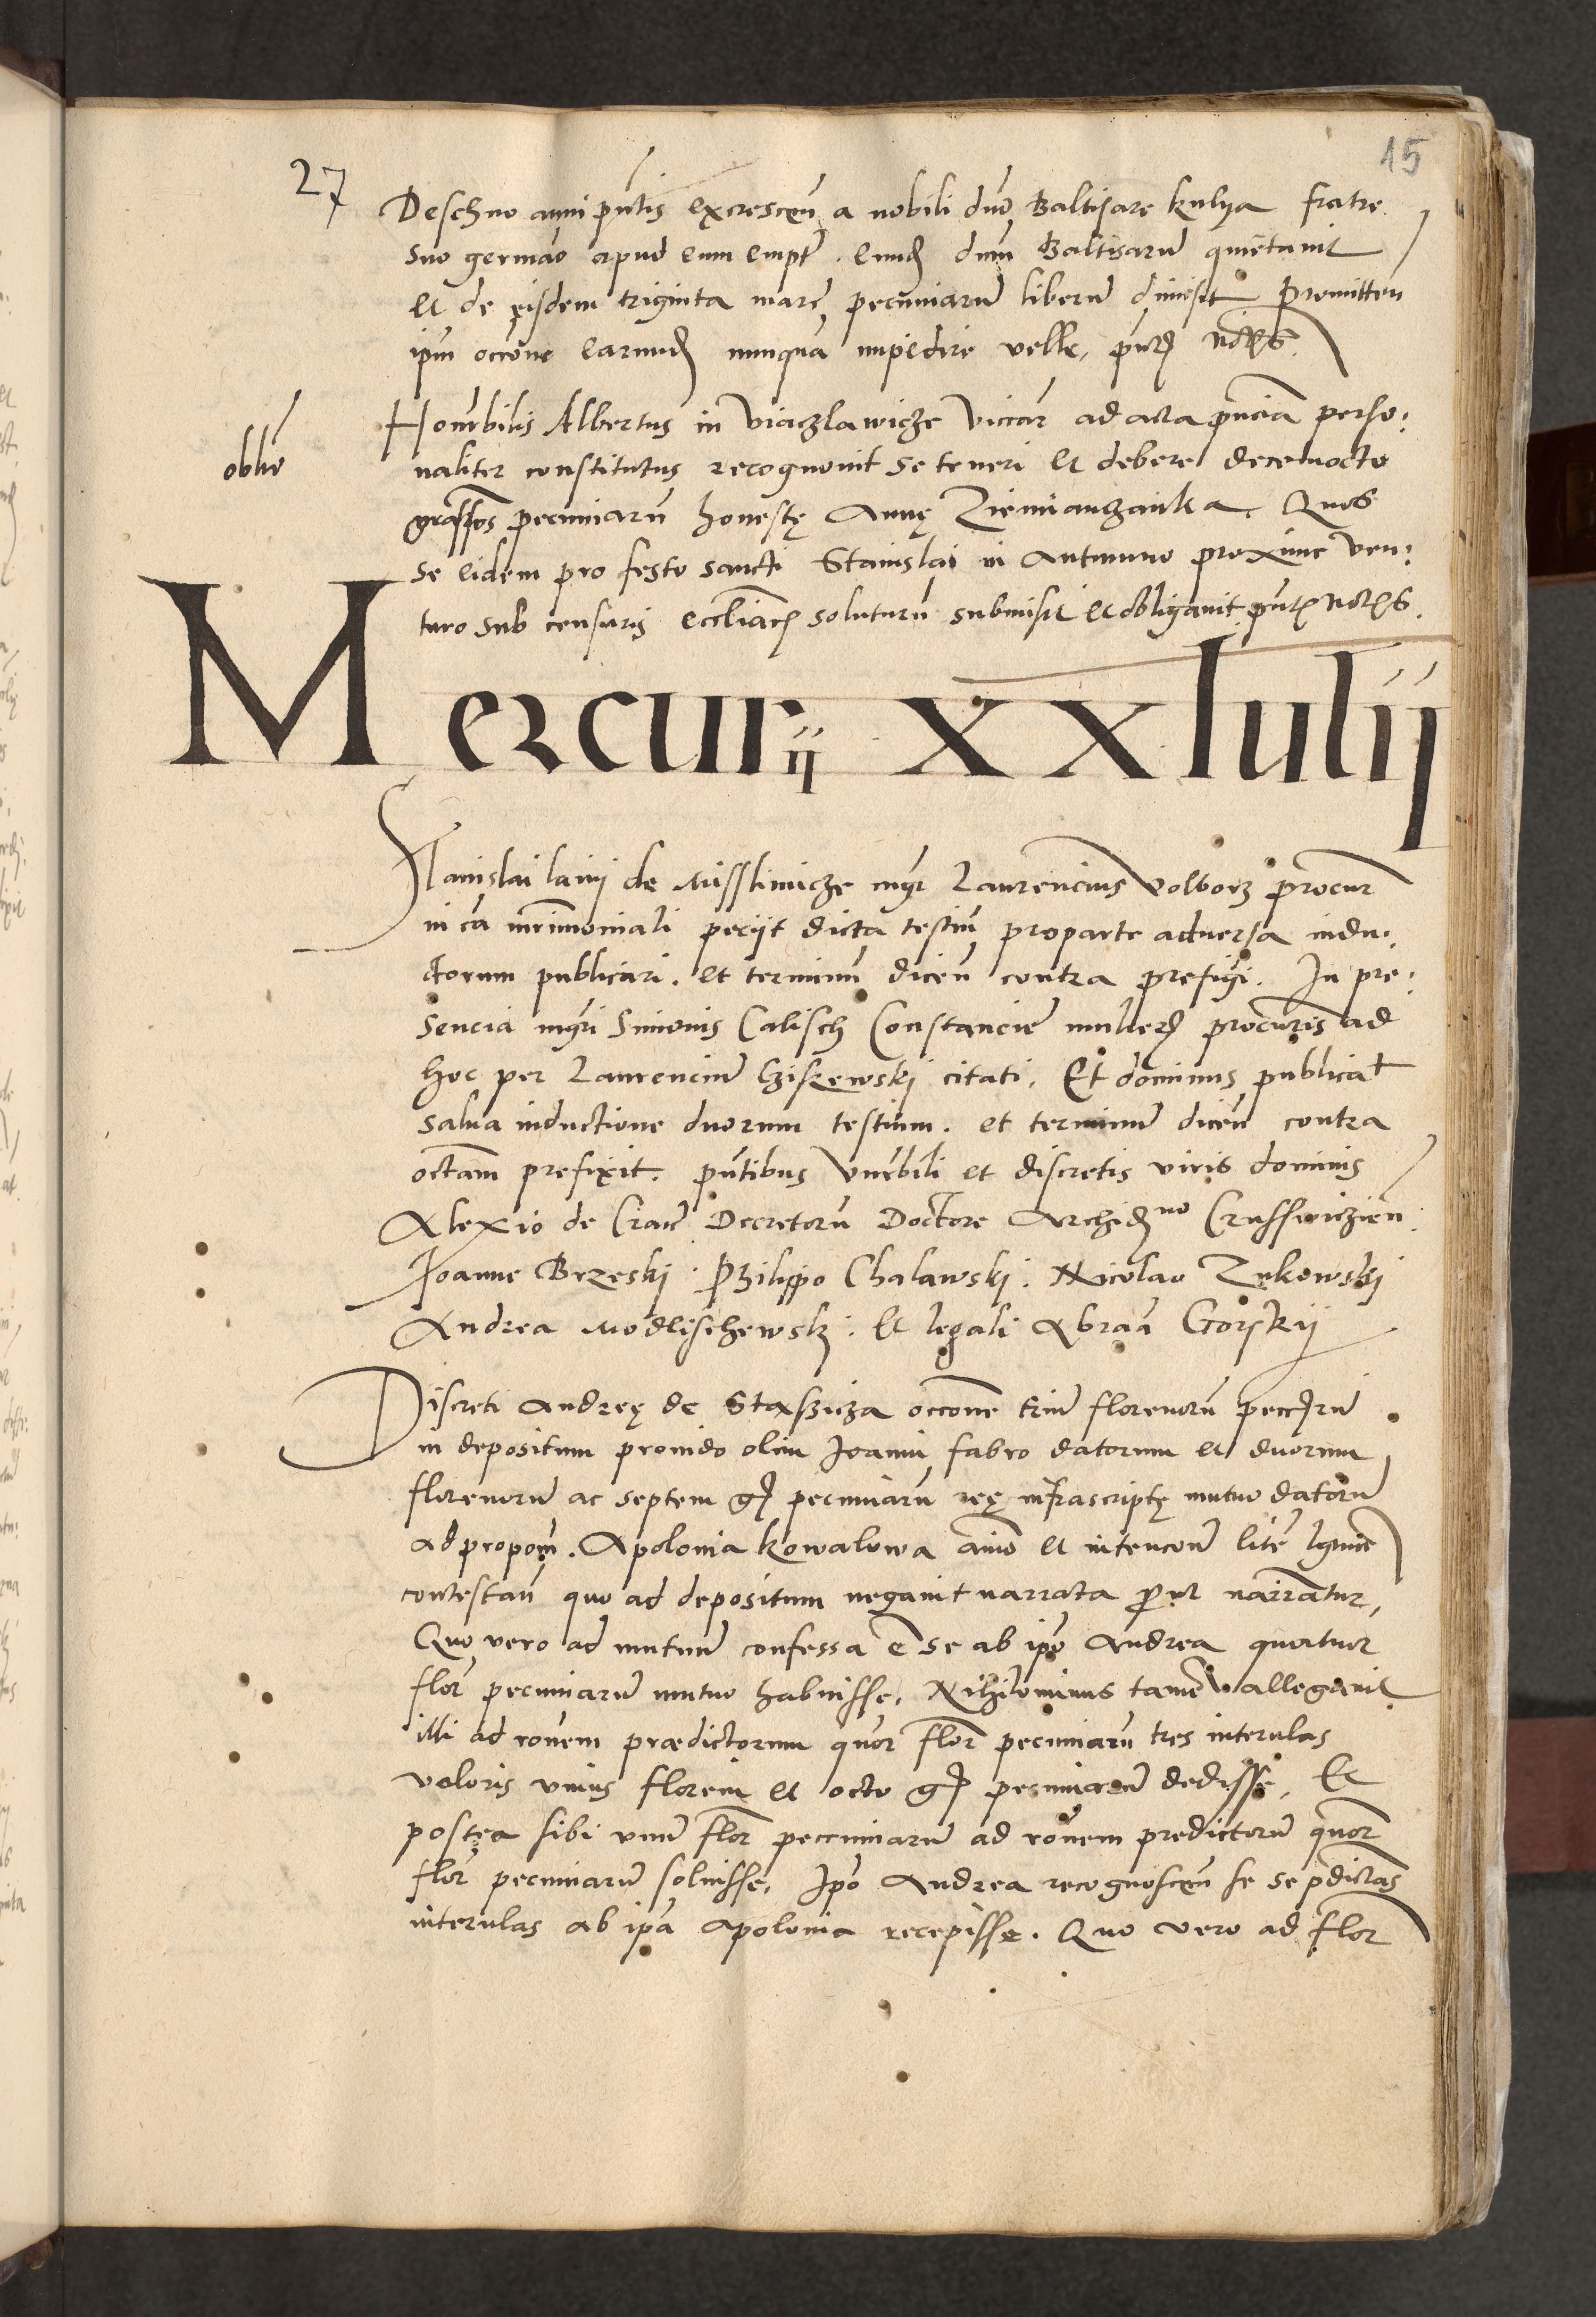 15
27
Deschno anni pntis excrescen a nobili dno Baltisare kulya fratre
suo germano apud eum empt. eund dnm Baltisarum quietauit
et de eisdem triginta marc pecuniarum liberum dimisit Promitten
ipm occone earund nunqua impedire velle, pntib
oblio
Honrbilis Albertus in Viaczlawicze viccar ad acta pncia perso:
naliter constitutus recognouit se teneri et debere decemocto
grossos pecuniarum honestę Annę Ziemianczanka. Quos
se eidem pro festo sancti Stanislai in Autumno proxime ven:
turo sub censuris eccliaci soluturum submisit et obligauit
Mercurij xx Iulij
Stanislai lanij de Misslinicze mgr Laurencius Wolborz procur
in ca mrimoniali peciit dicta testium pro parte aduersa indu:
ctorum publicari. et terminum dicen contra prefigi. In pre:
sencia mgri Simonis Calisch Constancie mulieris procuris ad
hoc per Laurencium citati. Et dominus publicat
salua inductione duorum testium. et terminum dicen contra
octam prefixit. pntibus vnrbili et discretis viris dominis
Alexio de Crac Decretorum Doctore Archidno Crusswiczien.
Joanne Brzeskj. Philippo Chalawskj. Nicolao Zukowskj
Andrea Modlischewsk. et legali Abraa Gorskij
Discreti Andreę de Stassicza occone trium florenorum peccrum
in depositum prouido olim Joanni fabro datorum et duorum
florenorum ac septem gr pecuniarum reę infrascriptę mutuo datorum
ad propom. Apolonia kowalowa animo et intencone litem
contestan quo ad depositum negauit narrata prout narrantur,
Quo vero ad mutuum confessa e se ab ipo Andrea quatuor
flor pecuniarum mutuo habuisse. Nihilominus tamen allegauit
illi ad ronem prædictorum quor flor pecuniarum tres interulas
valoris vnius floreni et octo gr pecuniarum dedisse. Et
postea sibi vnum flor peccuniarum ad ronem predictorum quor
flor pecuniarum soluisse. Ipo Andrea recognoscen se se pdictas
interulas ab ipa Apolonia recepisse. Quo vero ad flor